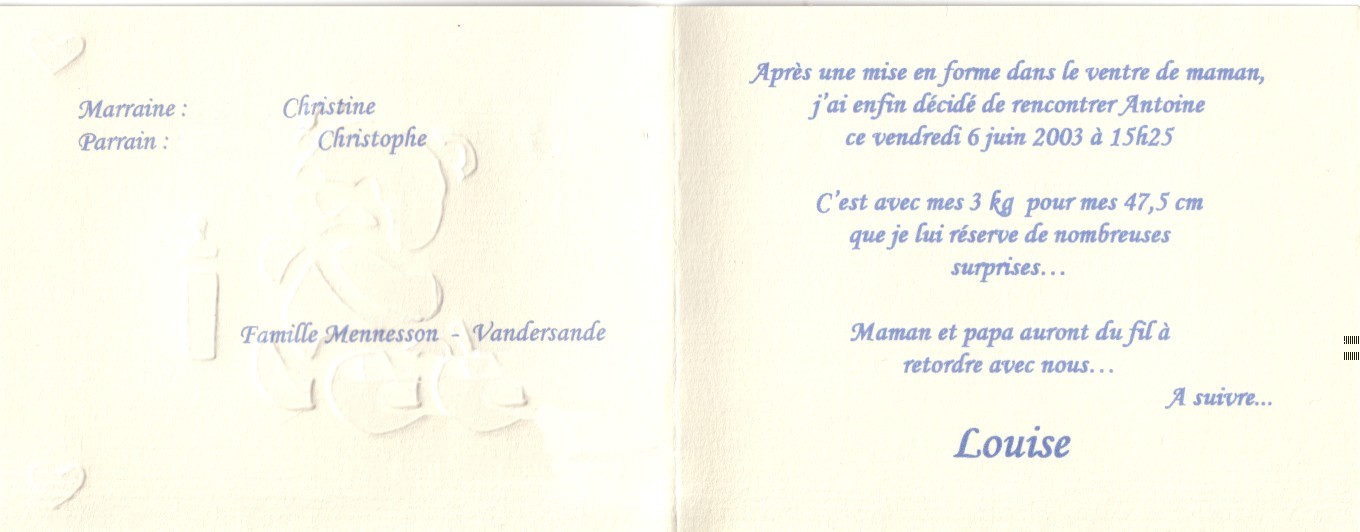 Marraine : Christine
Parrain : Christophe
Famille Mennesson - Vandersande
Après une mise en forme dans le ventre de maman,
j'ai enfin décidé de rencontrer Antoine
ce vendredi 6 juin 2003 à 15h25
C'est avec mes 3 kg pour mes 47,5 cm
que je lui réserve de nombreuses
surprises…
Maman et papa auront du fil à
retordre avec nous…
A suivre...
Louise